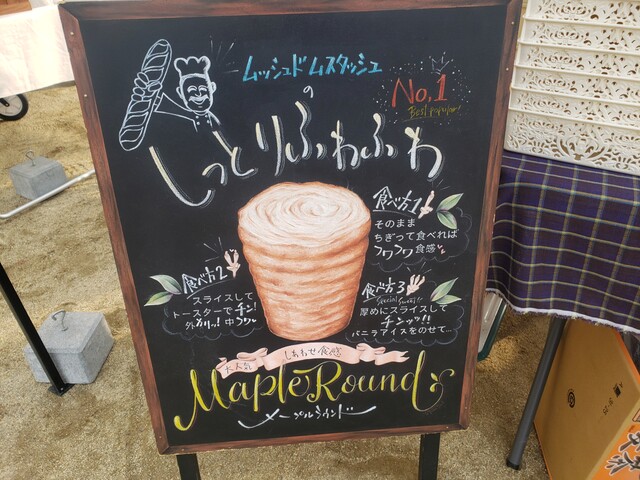 ムッシュドムスタッシュ
の
No,1
Best popular!
しっとりふわふわ
食べ方1
そのまま
ちぎって食べれば
フワフワ食感
食べ方2
スライスして
トースターでチン!
外カリッ!中フワッ
食べ方3
Special Sweets!!
厚めにスライスして
チンッ!!
バニラアイスをのせて…
大人気
しあわせ食感
Maple Round
メープルラウンド